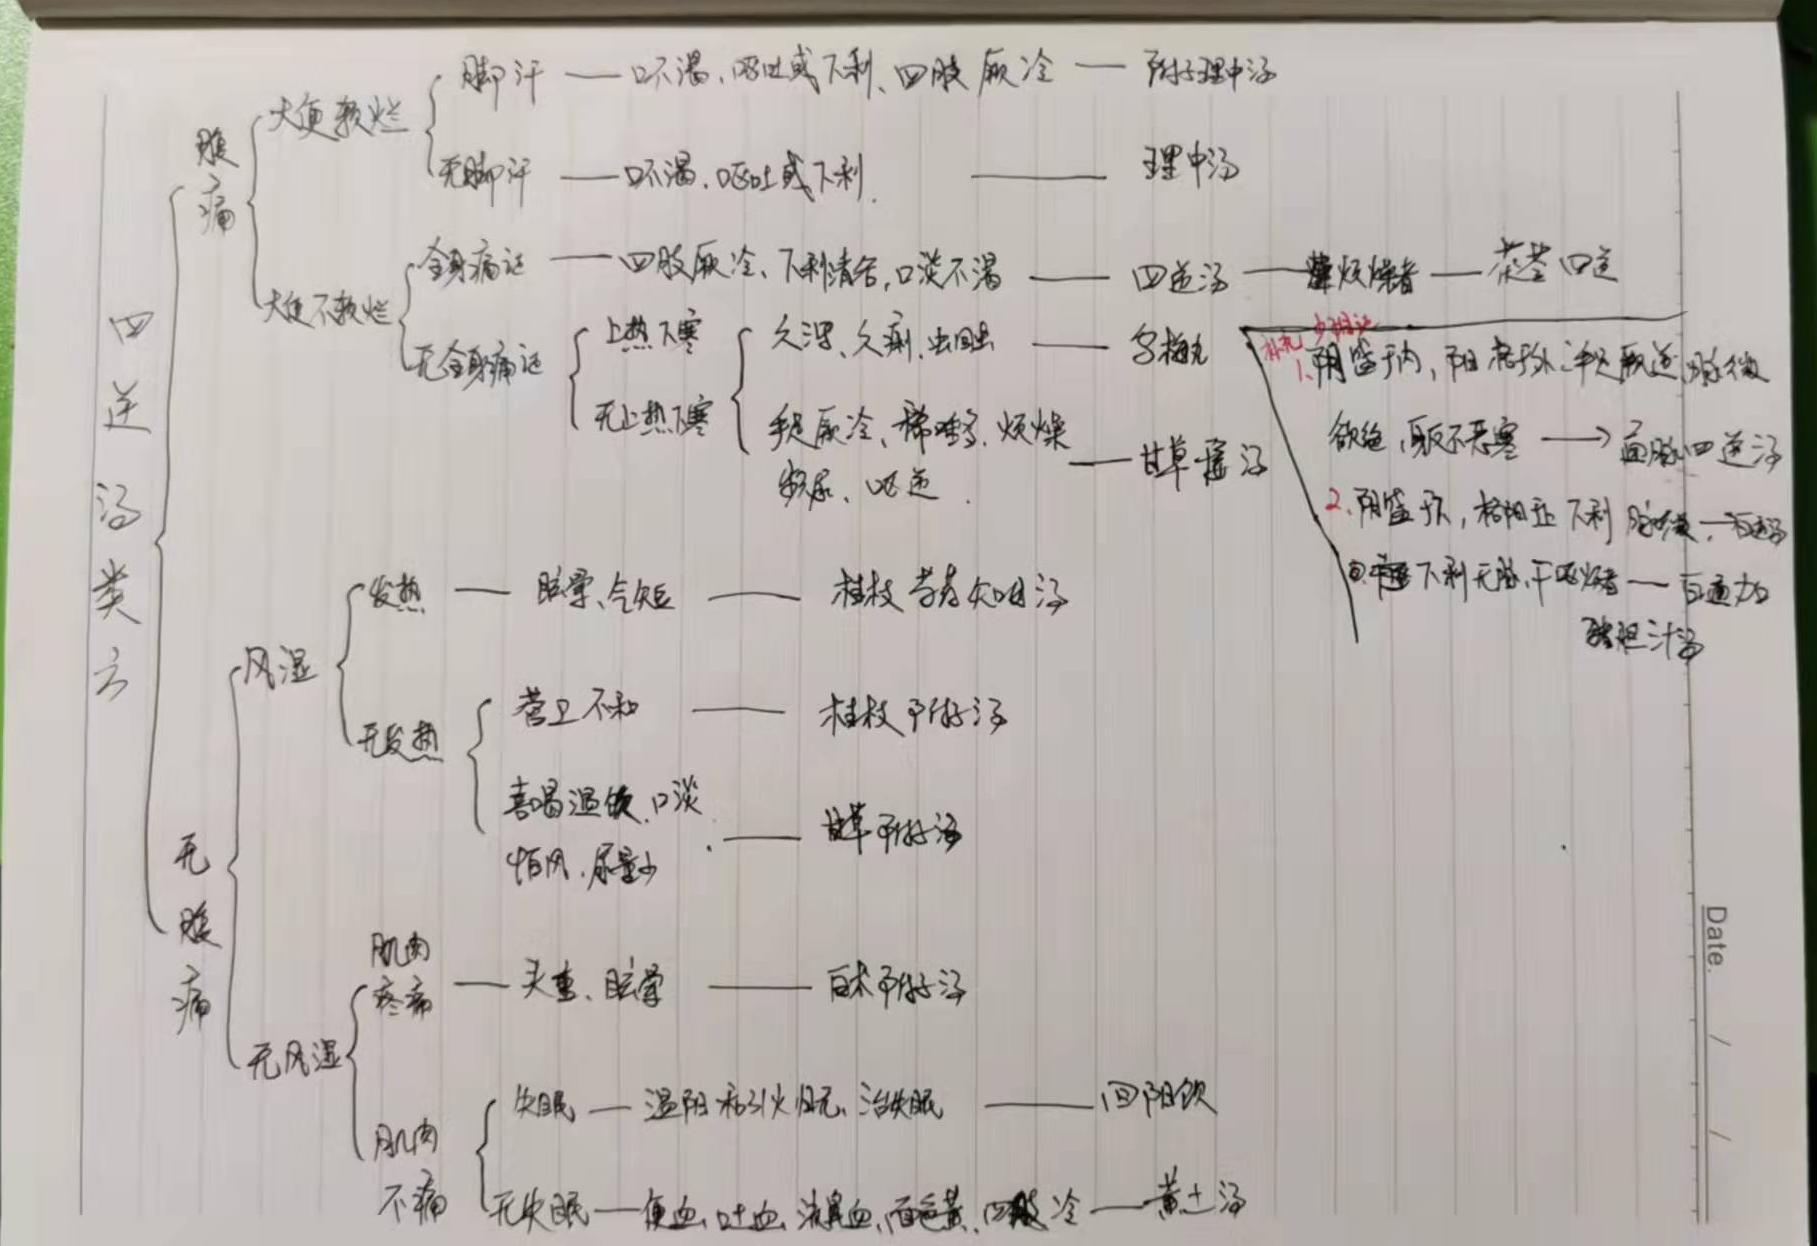 四逆汤类方
腹痛
大便软烂
脚汗 — 口不渴、呕吐或下利、四肢厥冷 — 附子理中汤
无脚汗 — 口不渴、呕吐或下利 — 理中汤
大便不软烂
全身痛证 — 四肢厥冷、下利清谷,口淡不渴 — 四逆汤 — 烦燥者 — 茯苓四逆
无全身痛证
上热下寒
久泄、久痢、虫 — 乌梅丸
无上热下寒
手足厥冷、稀唾多、烦燥
尿、呕逆 — 甘草汤
补充 少阴证
1.阴盛于内,阳格于外,手足厥逆,脉微
欲绝,身反不恶寒 → 通脉四逆汤
2.阴盛于下,格阳于上 下利 脉微 — 白通汤
下利无脉,干呕烦者 — 白通加
猪胆汁汤
无腹痛
风湿
发热 — 眩晕、气短 — 桂枝芍药知母汤
无发热
营卫不和 — 桂枝附子汤
喜喝温饮、口淡
怕风、尿量少 — 甘草附子汤
无风湿
肌肉
疼痛 — 头重、眩晕 — 白术附子汤
肌肉
不痛
失眠 — 温阳和引火归元、治失眠 — 回阳饮
无失眠 — 便血、吐血、流鼻血、面色黄、四肢冷 — 黄土汤
Date. / /